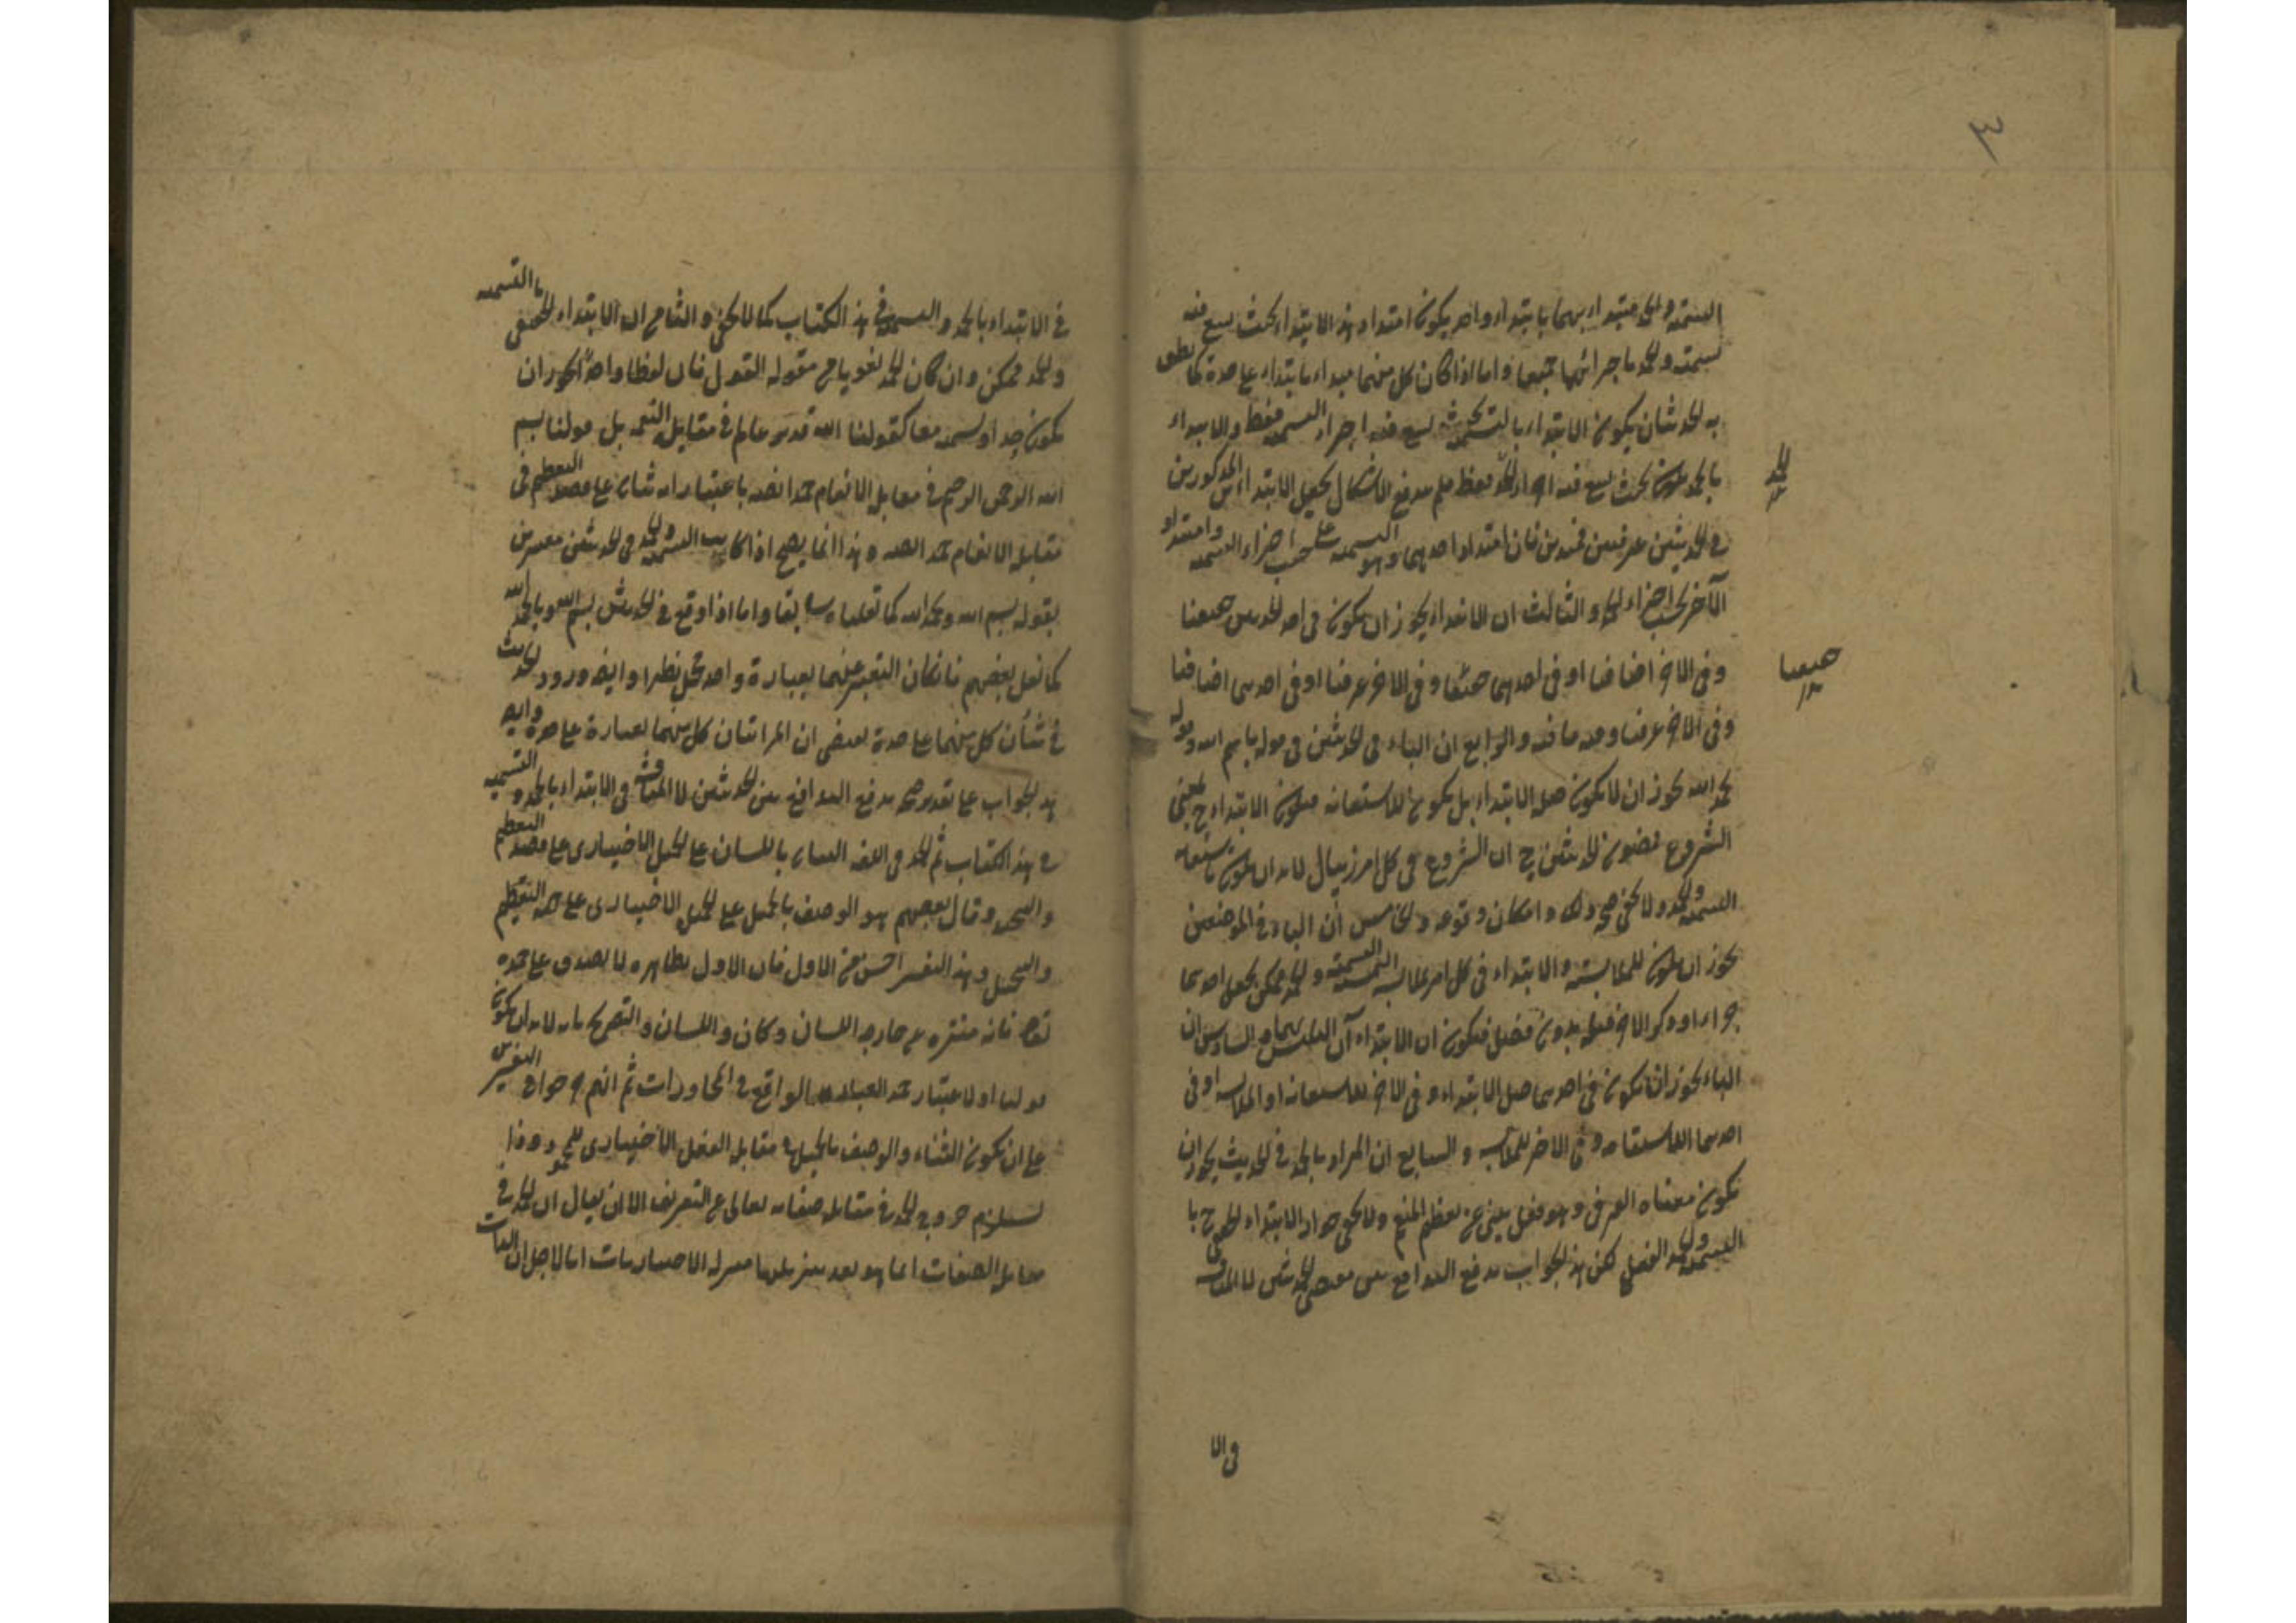 ٣
التسمية والحمد مبتدءا بهما بابتداء واحد يكون امتداد هذا الابتداء بحيث يسع فيه
التسمية والحمد باجزائهما جميعا واما اذا كان كل منهما مبتداء بابتداء على حدة كما نطق
به الحديثان يكون الابتداء بالتسمية بحيث يسع فيه اجزاء التسمية فقط والابتداء
بالحمد يكون بحيث يسع فيه اجزاء الحمد فقط فلم يندفع الاشكال بجعل الابتداء المذكورين
في الحديثين عرفيين فان امتداد احدهما وهو التسمية على حسب اجزاء التسمية وامتداد
الآخر بحسب اجزاء الحمد والثالث ان الابتداء يجوز ان يكون في احد الحديثين حقيقيا
وفي الآخر اضافيا او في احدهما حقيقيا وفي الآخر عرفيا او في احدهما اضافيا
وفي الآخر عرفيا وفيه ما فيه والرابع ان الباء في الحديثين في قوله باسم الله وقوله
بحمد الله يجوز ان لا يكون صلة الابتداء بل يكون للاستعانة فيكون الابتداء ح بمعنى
الشروع فمضمون الحديثين ح ان الشروع في كل امر ذي بال لا بد ان يكون باستعانة
التسمية والحمد ولا يخفى صحة ذلك وامكان وقوعه والخامس ان الباء في الموضعين
يجوز ان يكون للملابسة والابتداء في كل امر بملابسة التسمية والحمد ممكن بجعل احدهما
جزاء او ذكر الآخر قبله بدون فصل فيكون ان الابتداء آن التلبس بهما والسادس ان
الباء يجوز ان يكون في احدهما صلة الابتداء وفي الآخر للاستعانة او الملابسة او في
احدهما للاستعانة وفي الآخر للملابسة والسابع ان المراد بالحمد في الحديث يجوز ان
يكون معناه العرفي وهو فعل ينبئ عن تعظيم المنعم ولا يخفى جواز الابتداء الحقيقي ح با
التسمية والحمد الفعلي لكن هذا الجواب يدفع التدافع بين معنى الحديثين لا المناقشة
في الا
الحمد
حقيقيا
في الابتداء بالحمد والتسمية في هذا الكتاب كما لا يخفى والثامن ان الابتداء الحقيقي بالتسمية
والحمد ممكن وان كان الحمد لغويا من مقولة القول فان لفظا واحدا يجوز ان
يكون حمدا وتسمية معا كقولنا الله قدير عالم في مقابلة النعم بل قولنا بسم
الله الرحمن الرحيم في مقابلة الانعام حمد ايضا باعتبار انه ثناء على قصد التعظيم في
مقابلة الانعام حمد الله وهذا انما يصح اذا كانت التسمية والحمد في الحديثين معبرين
بقوله بسم الله وبحمد الله كما نقلناه سابقا واما اذا وقع في الحديث بسم الله وبالحمد لله
كما نقل بعضهم فامكان التعبير عنهما بعبارة واحدة محل نظر وايضا ورود الحديث
في شأن كل منهما على حدة يقتضي ان المراد اتيان كل منهما بعبارة على حدة وايضا
هذا الجواب على تقدير صحته يدفع التدافع بين الحديثين لا المناقشة في الابتداء بالحمد والتسمية
في هذا الكتاب ثم الحمد في اللغة الثناء باللسان على الجميل الاختياري على قصد التعظيم
والتبجيل وقال بعضهم هو الوصف بالجميل على الجميل الاختياري على جهة التعظيم
والتبجيل وهذا التفسير احسن من الاول فان الاول بظاهره لا يصدق على حمده
تعالى فانه منزه عن جارحة اللسان وكان واللسان والتصريح بانه لا بد ان يكون
قوليا او لاعتبار حمد العباد الواقع في المحاورات ثم انهم صرحوا في التفسير
على ان يكون الثناء والوصف بالجميل في مقابلة الفعل الاختياري للمحمود وذا
يستلزم خروج الحمد في مقابلة صفاته تعالى عن التعريف الا ان يقال ان الحمد في
مقابلة الصفات انما هو بعد تنزيلها منزلة الاختياريات اما لاجل ان الذات